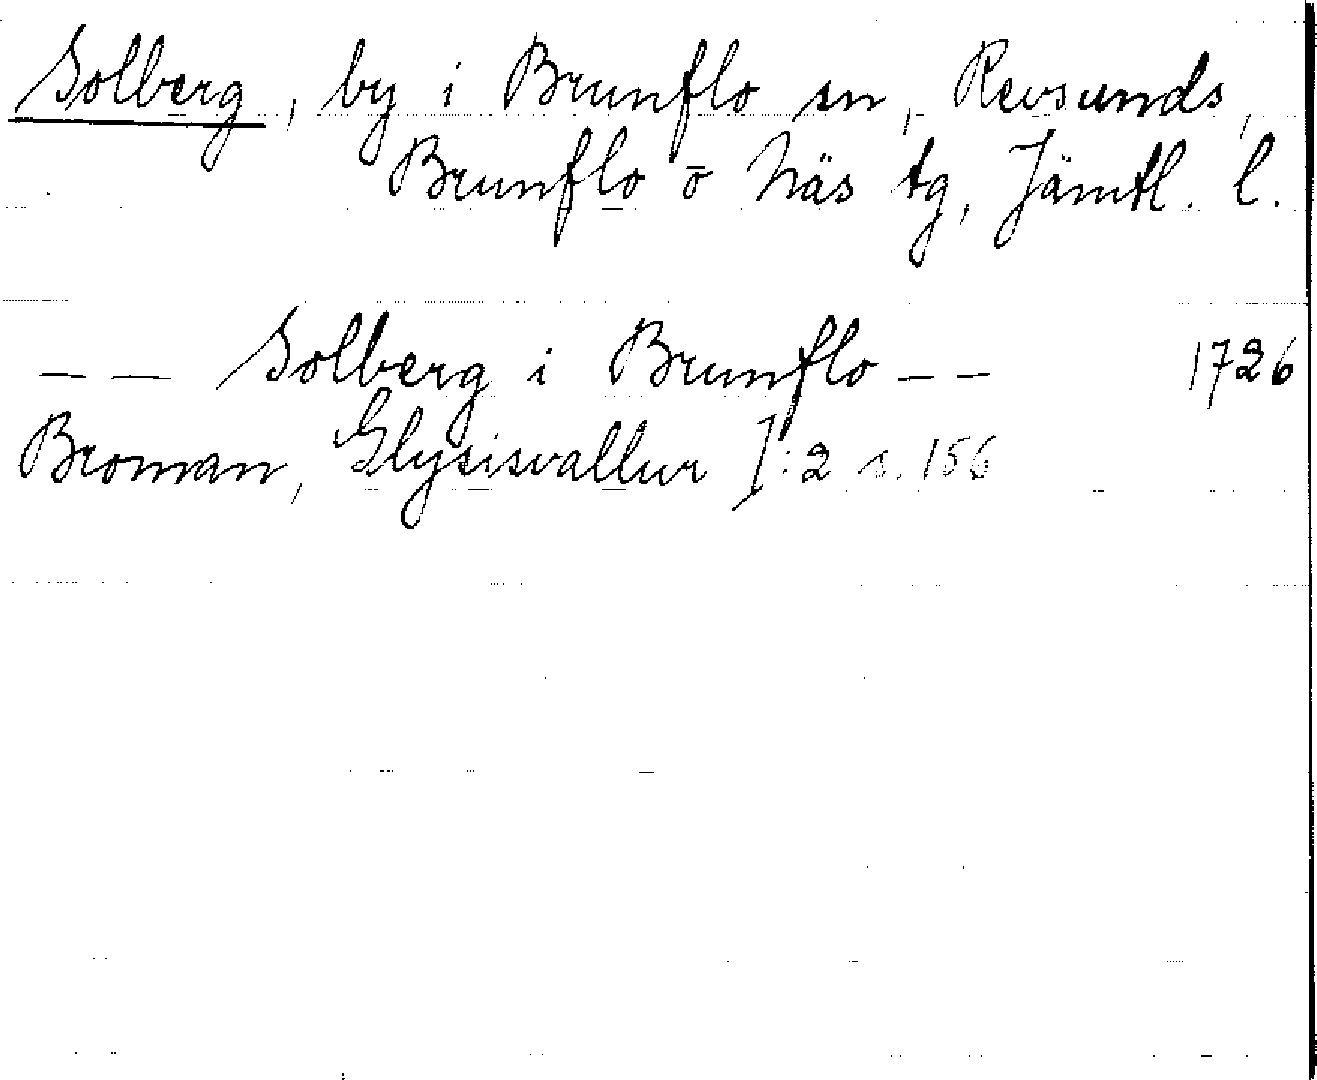 Solberg, by i Brunflo sn, Revsunds,
Brunflo o Näs tg, Jämtl. l.
— — Solberg i Brunflo — — 1726
Broman, Glysisvallur I:2 s. 156